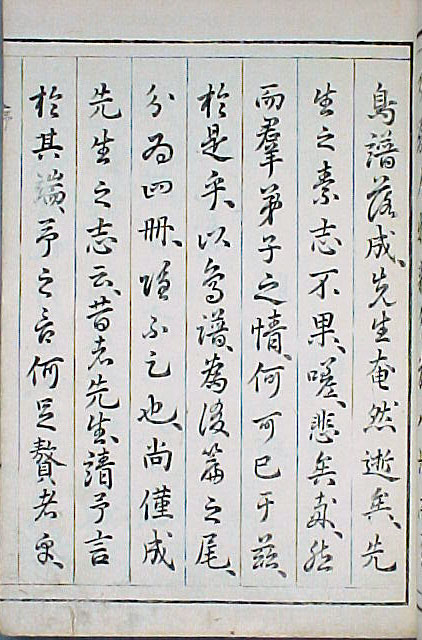 鳥譜落成、先生奄然逝矣、先
生之素志不果、嗟、悲矣哉、然
而羣弟子之情、何可已于茲、
於是乎、以鳥譜、為後篇之尾、
分為四冊、唯不乞也、尚僅成
先生之志云、昔者先生、請予言
於其端、予之言何足贅者乎、